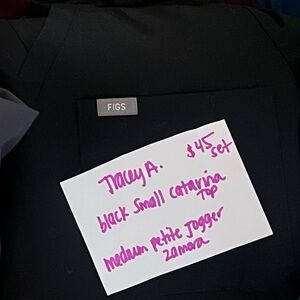 FIGS
Tracey A.
$45
set
black Small catarina
TOP
medium petite Jogger
zamora